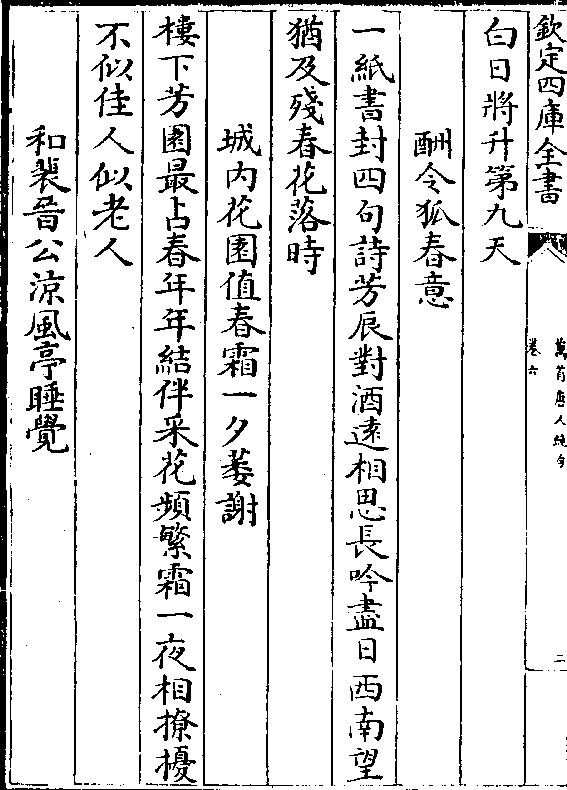 欽定四庫全書
萬首唐人絶句
卷六
二
白日將升第九天
酬令狐春意
一紙書封四句詩芳辰對酒遠相思長吟盡日西南望
猶及殘春花落時
城内花園值春霜一夕萎謝
樓下芳園最占春年年結伴采花頻繁霜一夜相撩擾
不似佳人似老人
和裴晉公涼風亭睡覺